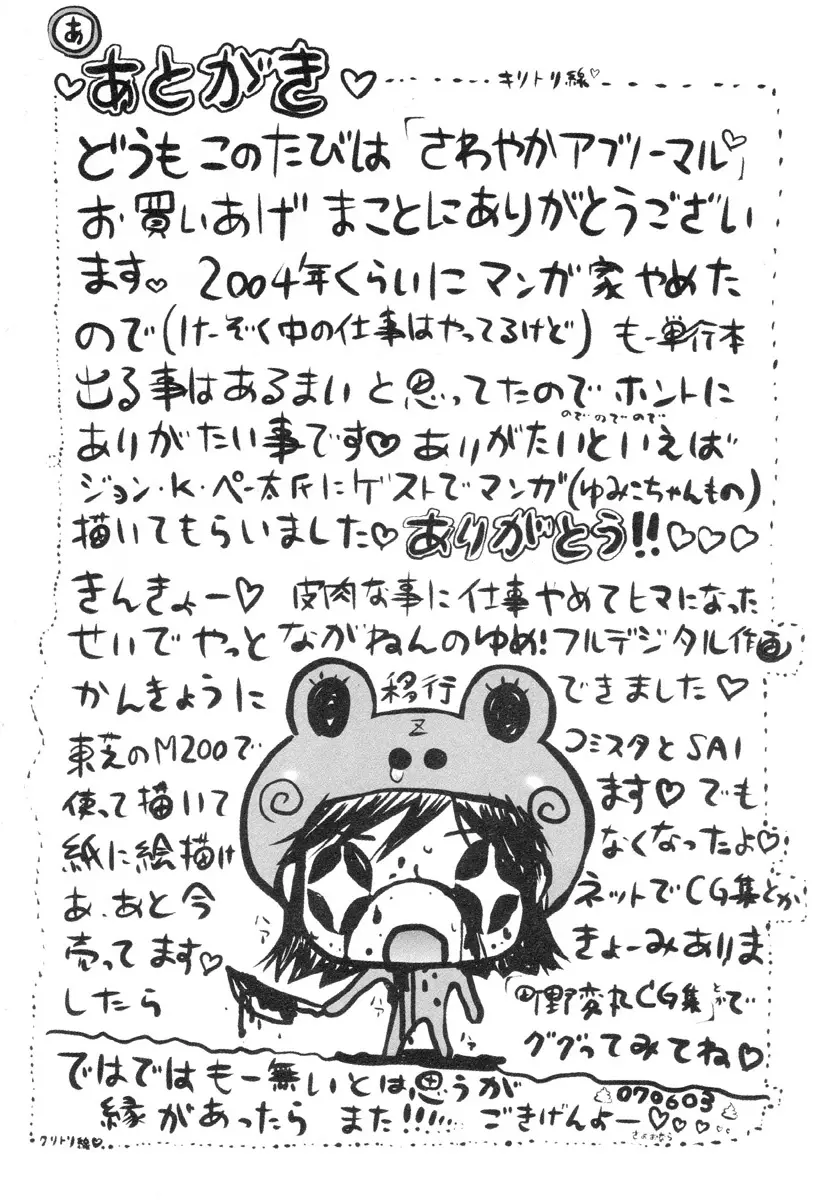 あ
あとがき
キリトリ線♡
どうもこのたびは「さわやかアブノーマル♡」
お買いあげ まことにありがとうござい
ます♡ 2004年くらいにマンガ家やめた
ので(けーぞく中の仕事はやってるけど) もー単行本
出る事はあるまいと思ってたのでホントに
のでのでので
ありがたい事です♡ ありがたいといえば
ジョン・K・ペー太氏にゲストでマンガ(ゆみこちゃんもの)
描いてもらいました♡ ありがとう!!♡♡♡
きんきょー♡ 皮肉な事に仕事やめてヒマになった
せいでやっとながねんのゆめ!フルデジタル作画
かんきょうに 移行 できました♡
Z
東芝のM200で コミスタとSAI
使って描いて ます♡ でも
紙に絵描け なくなったよ♡
あ、あと今 ネットでCG集とか
売ってます♡ きょーみありま
したら 「町野変丸CG集」とかで
ググってみてね♡
ハァ
ハァ
ハァ
ではではもー無いとは思うが
縁があったら また!!!!!! ごきげんよー♡♡♡♡♡
070603
さよおなら
クリトリ線♡